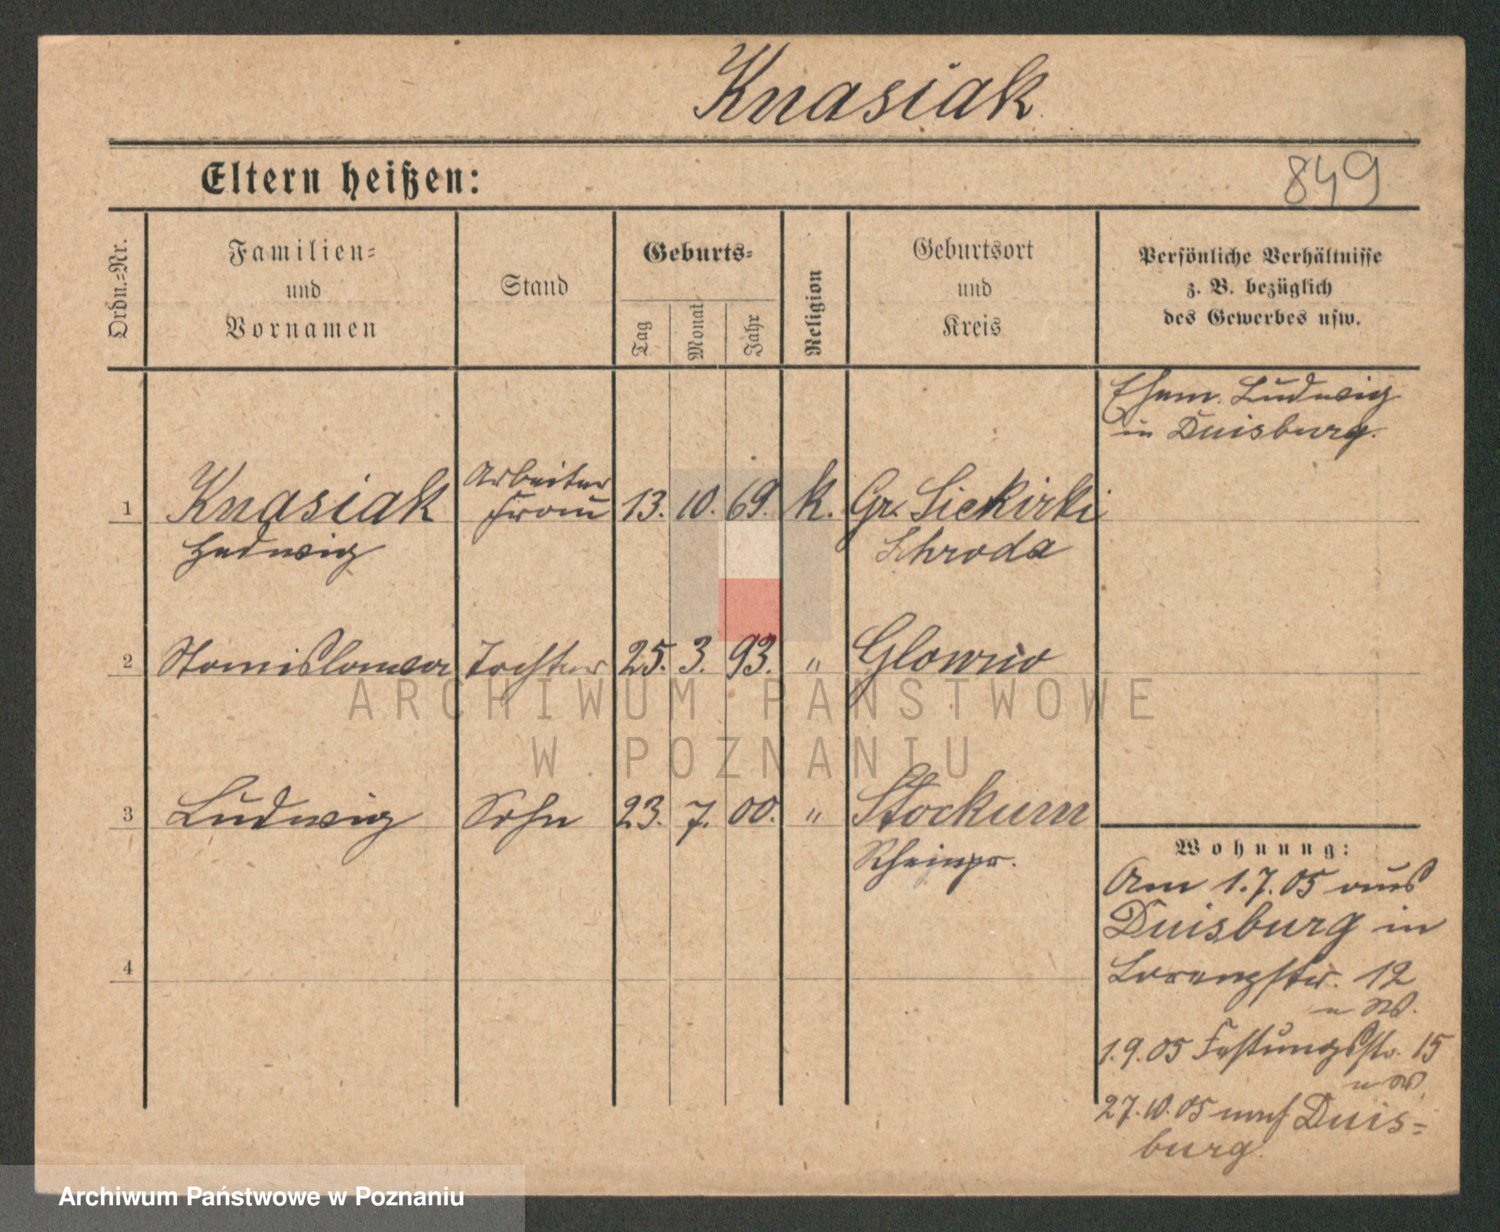 Knasiak
Eltern heißen:
849
Ordn.-Nr.
Familien-
und
Vornamen
Stand
Geburts-
Tag
Monat
Jahr
Religion
Geburtsort
und
Kreis
Persönliche Verhältnisse
z. B. bezüglich
des Gewerbes usw.
Ehem. Ludwig
in Duisburg.
1 Knasiak Arbeiter Frau 13. 10. 69. k. Gr. Siekirki
Hedwig Schroda
2 Stanislawa Tochter 25. 3. 93. " Glowno
ARCHIWUM PAŃSTWOWE
W POZNANIU
3 Ludwig Sohn 23. 7. 00. " Stockum
Rheinpr.
4
Wohnung:
Am 1.7.05 aus
Duisburg in
Lorenzstr. 12
1.9.05 Festungsstr. 15
27.10.05 nach Duis-
burg
Archiwum Państwowe w Poznaniu